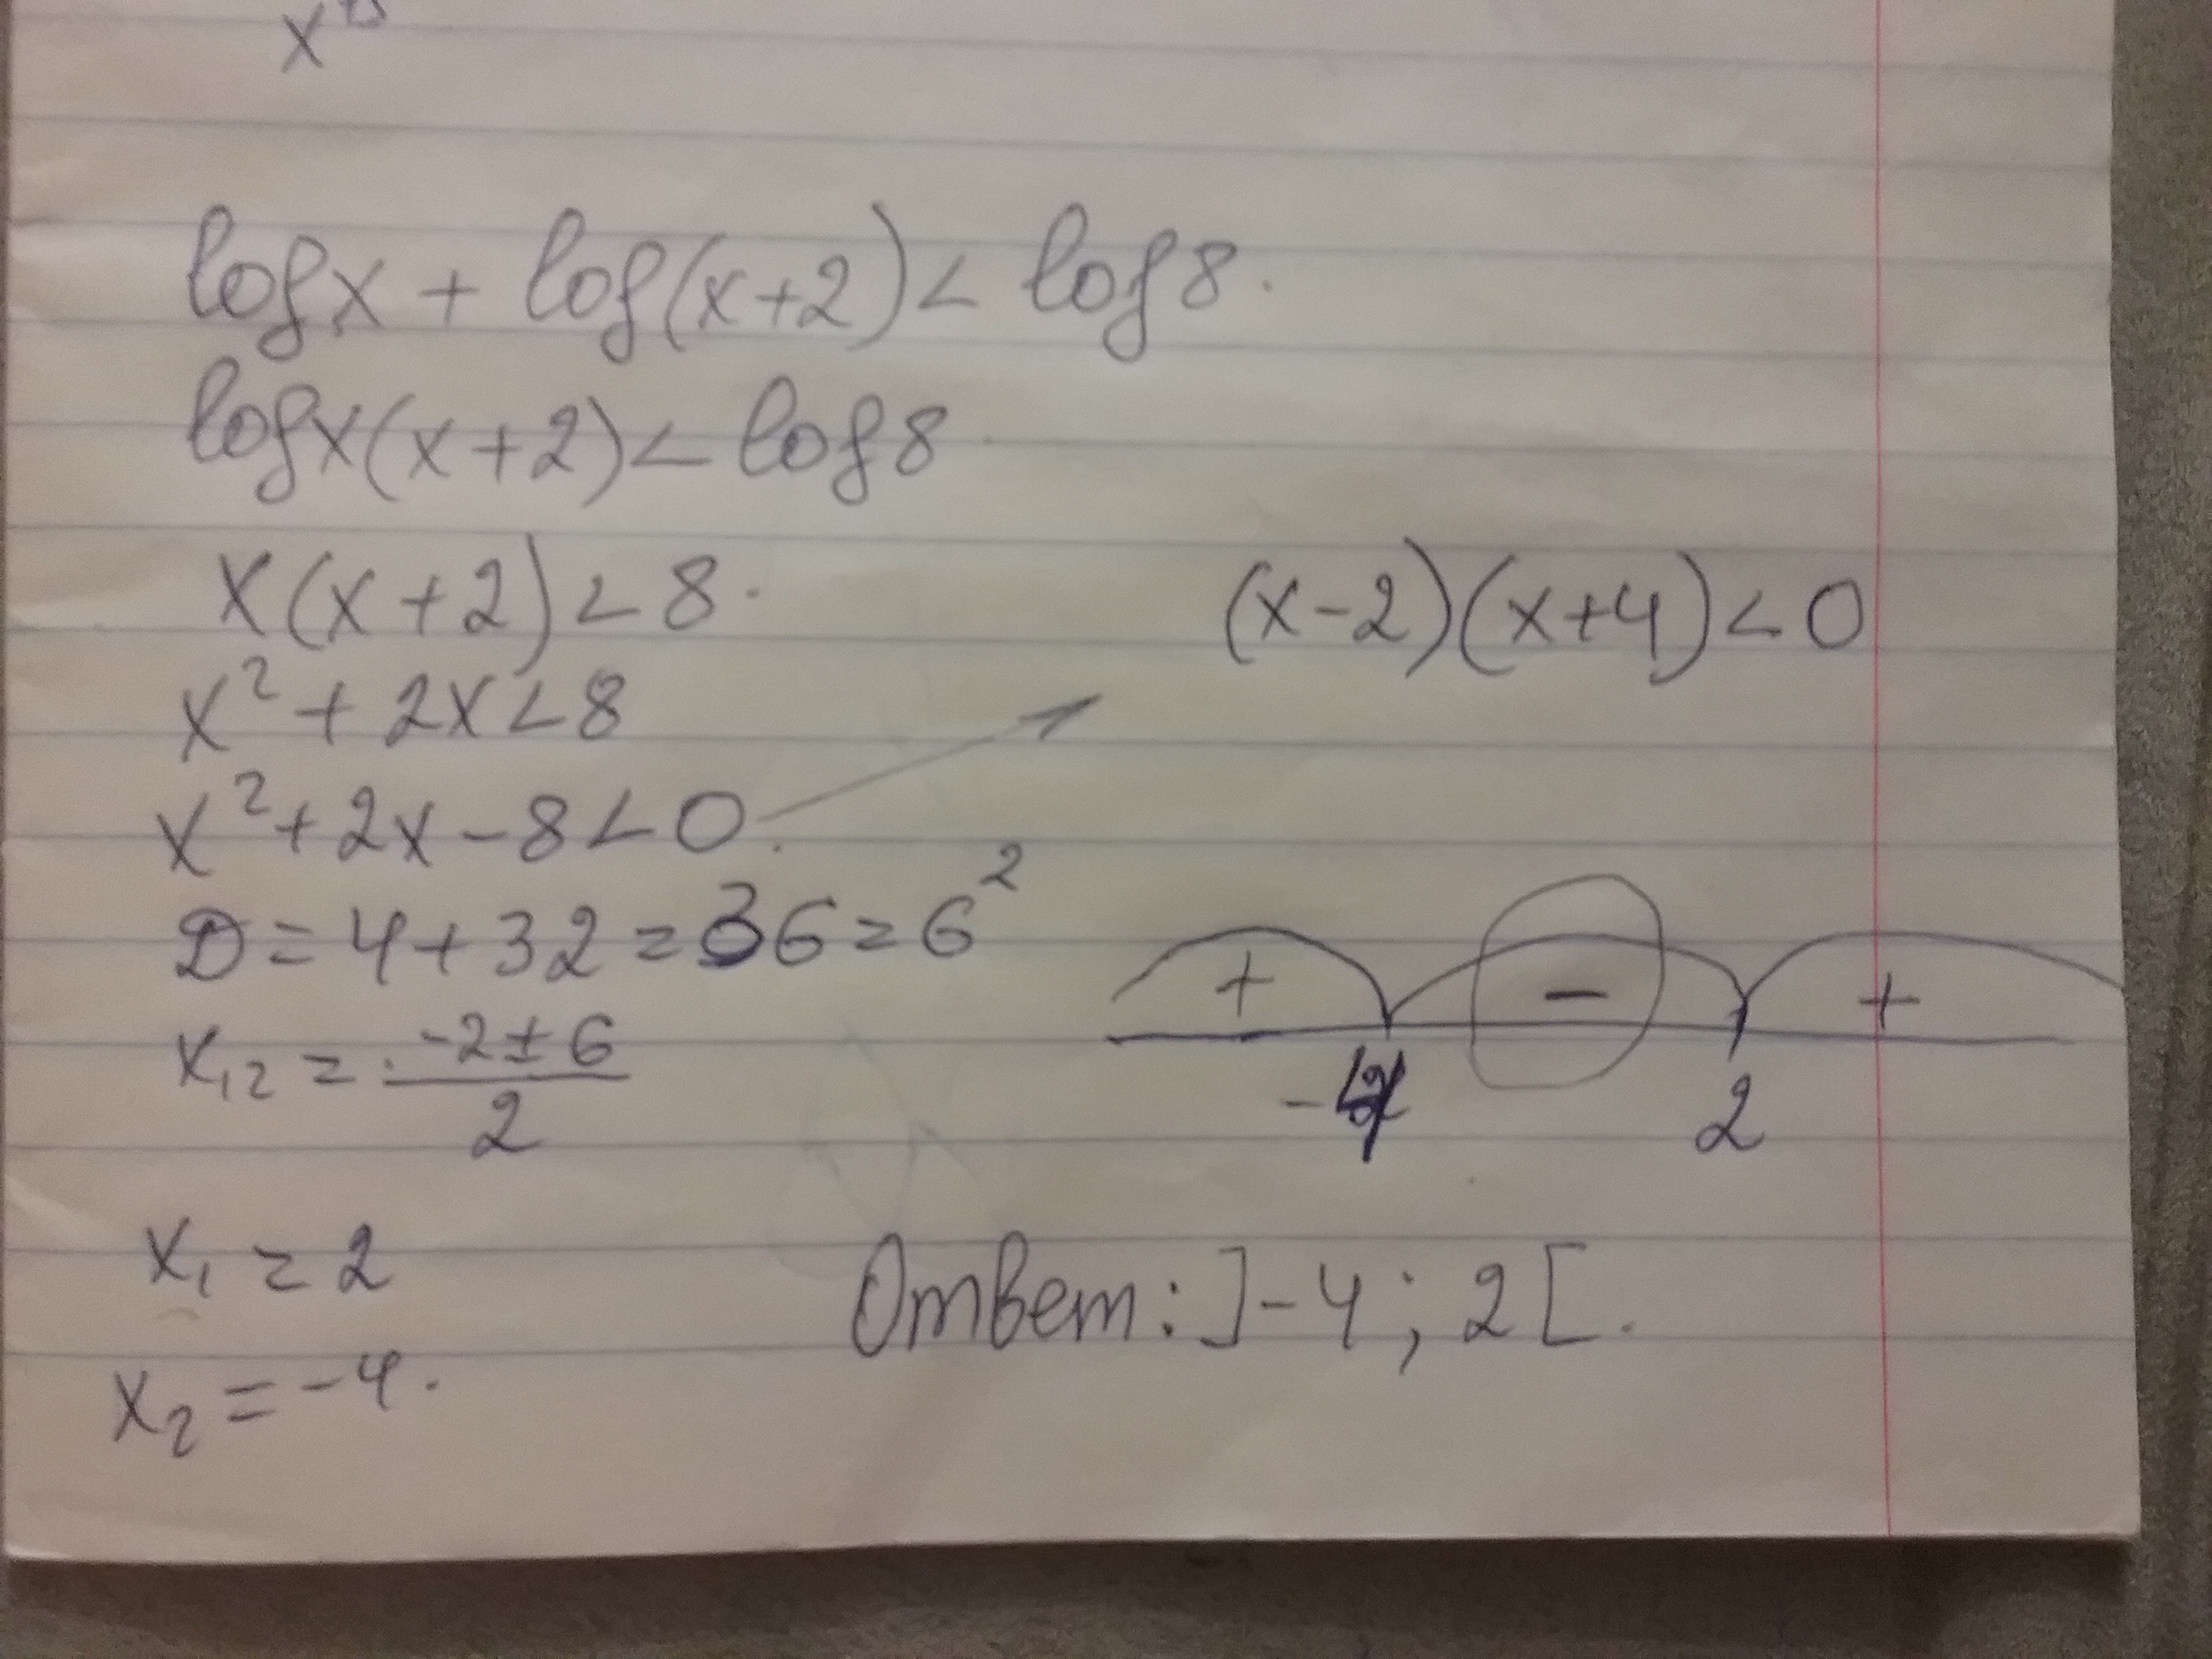 log x + log(x+2) < log 8.
log x(x+2) < log 8
x(x+2) < 8.
x² + 2x < 8
x² + 2x - 8 < 0.
D = 4 + 32 = 36 = 6²
x₁₂ = (-2 ± 6)/2
x₁ = 2
x₂ = -4.
(x-2)(x+4) < 0
+ - +
-4 2
Ответ: ]-4; 2[.